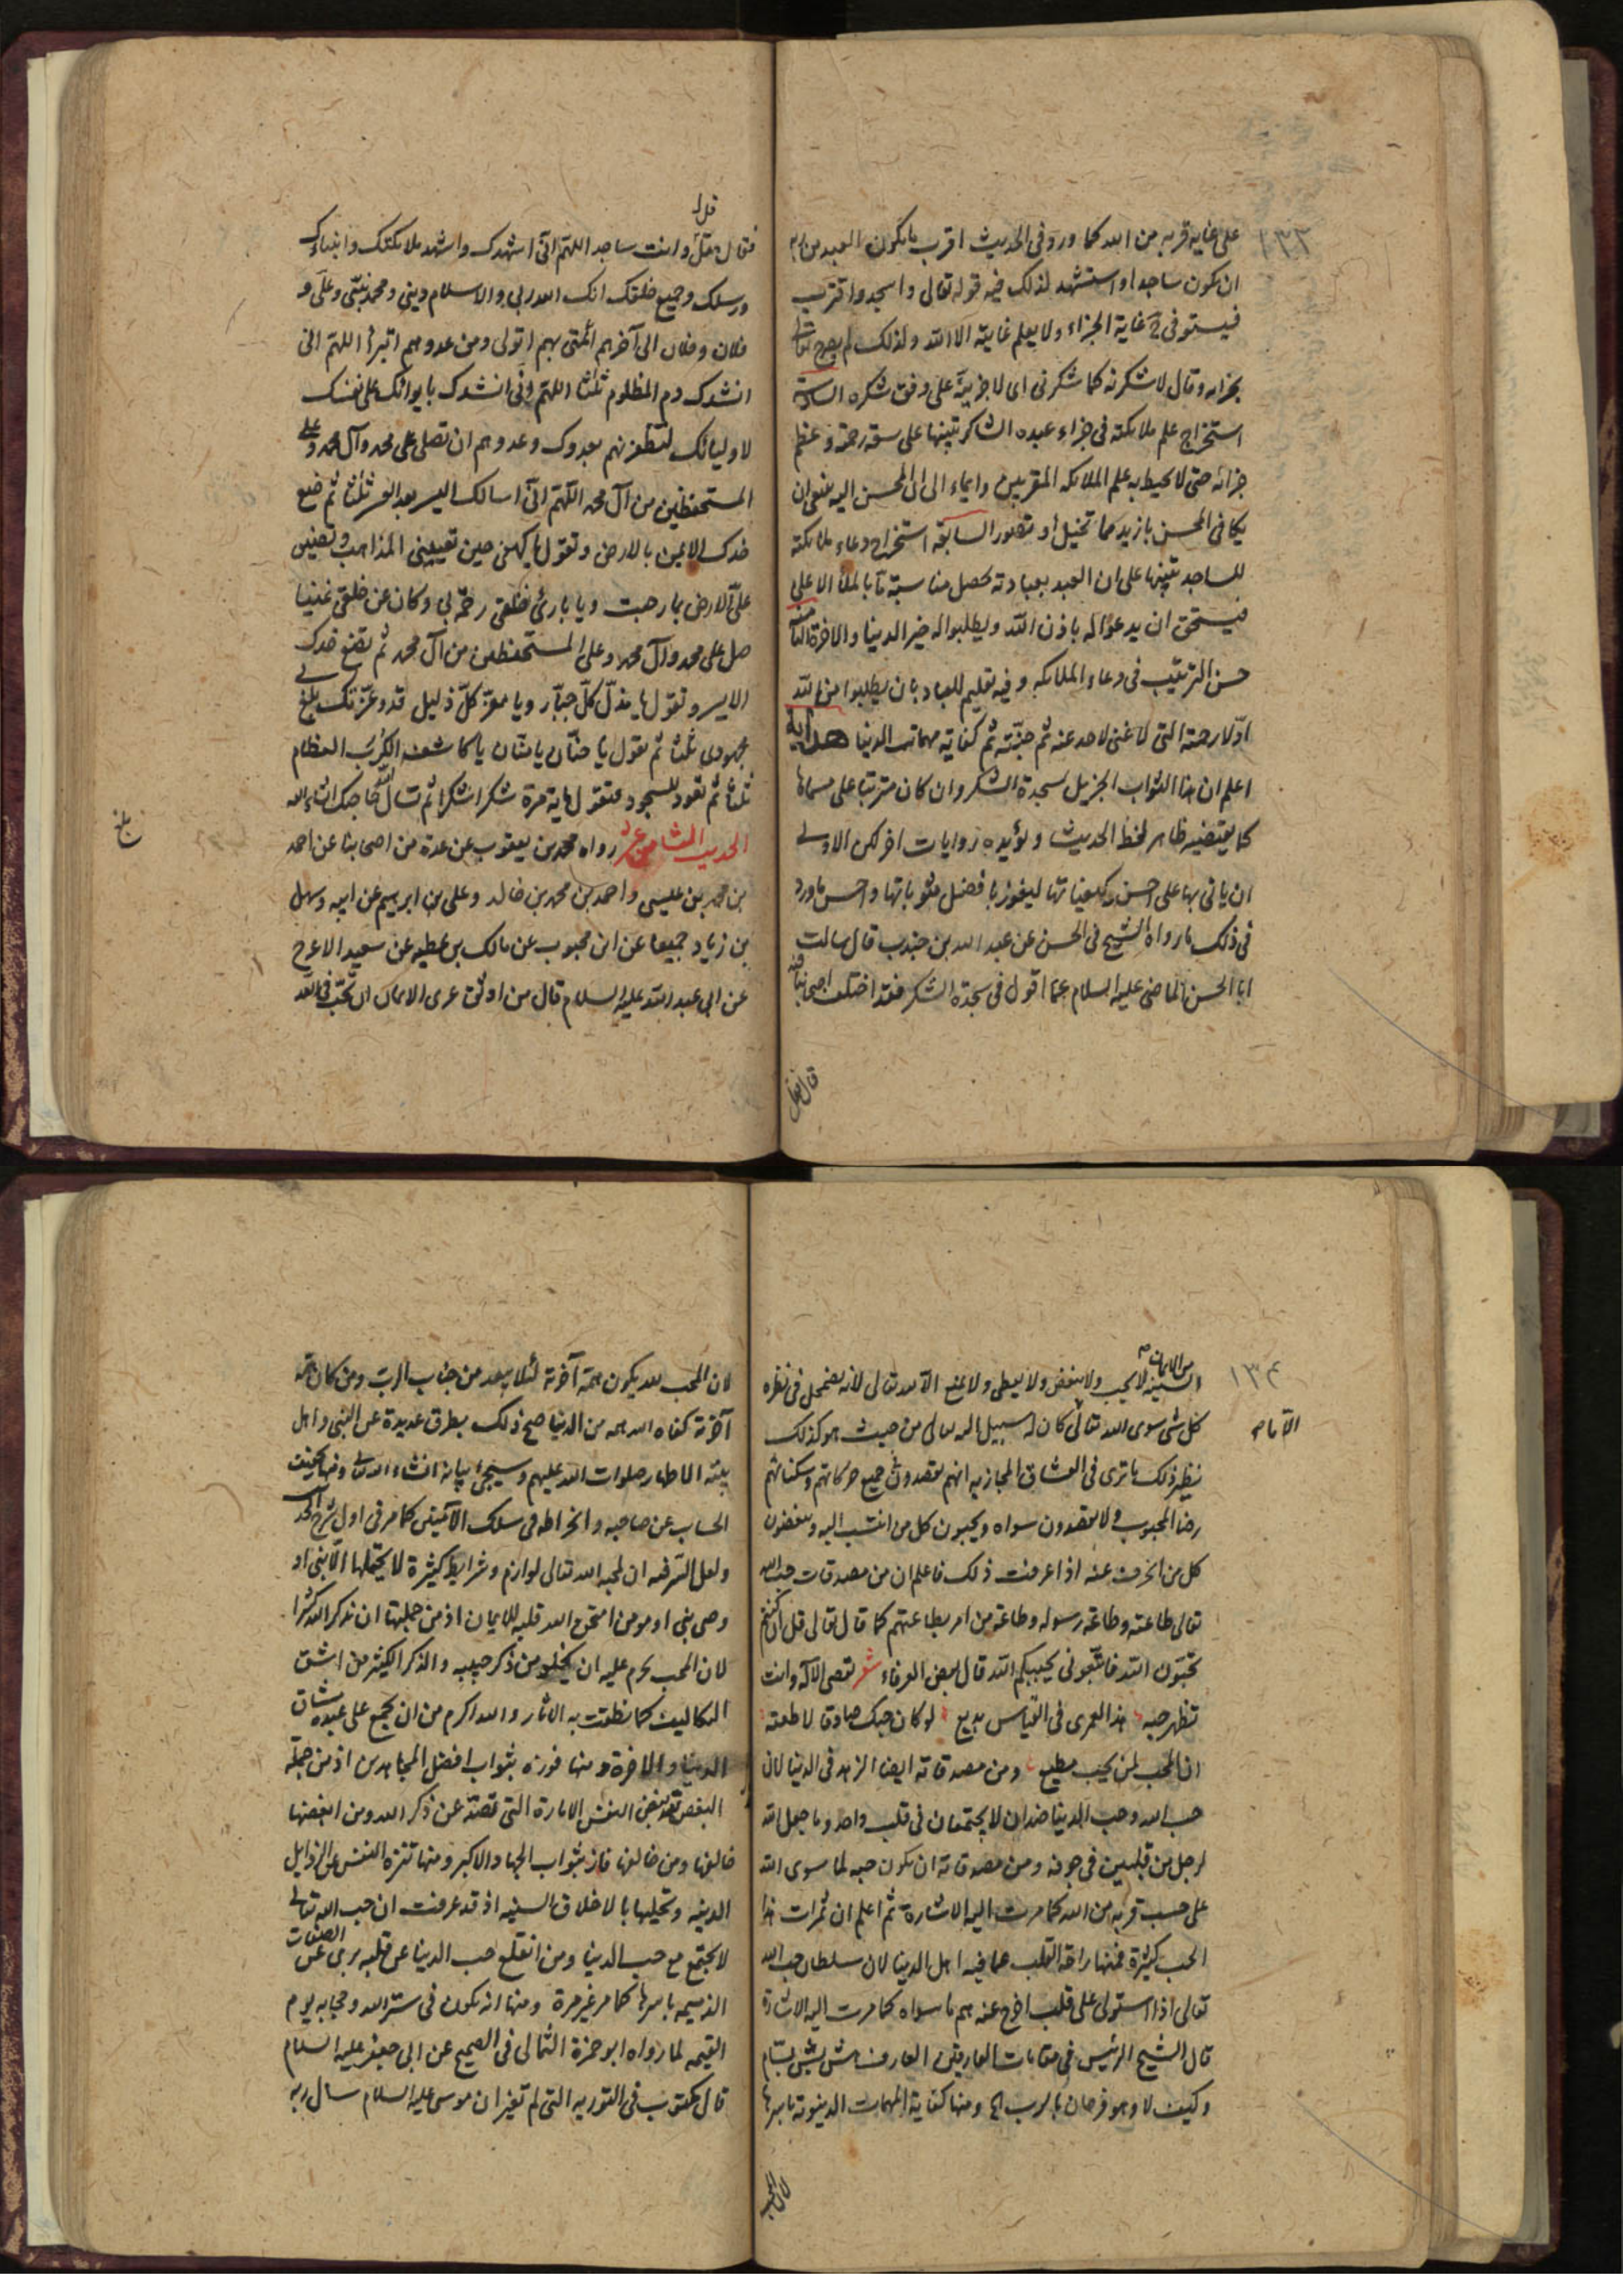 ١٣٢
على غاية قربه من الله كما ورد فى الحديث اقرب ما يكون العبد من ربه
ان يكون ساجدا واستشهد لذلك فيه قوله تعالى واسجد واقترب
فيستوفى ح غاية الجزاء ولا يعلم غايته الا الله ولذلك لم يصرح تعالى
بجزائه وقال لاشكرنه كما شكرنى اى لاجزينه على وفق شكره السادسة
استخراج علم ملائكته فى جزاء عبده الشاكر تنبيها على سعة رحمته وعظم
جزائه حتى لا يحيط به علم الملائكه المقربين وايماء الى ان المحسن اليه ينبغى ان
يكافى المحسن بازيد مما تخيل او تصور السابعة استخراج دعاء ملائكته
للساجد تنبيها على ان العبد بعبادته يحصل مناسبة ما بالملأ الاعلى
فيستحق ان يدعوا له باذن الله ويطلبوا له خير الدينا والاخرة الثامنة
حسن الترتيب فى دعاء الملائكه وفيه تعليم للعباد بان يطلبوا من الله
اوّلا رحمته التى لا غنى لاحد عنه ثم جنّته ثم كفاية مهمات الدنيا هداية
اعلم ان هذا الثواب الجزيل لسجدة الشكر وان كان مترتبا على مسماها
كما يقتضيه ظاهر لفظ الحديث ويؤيده روايات اخر لكن الاولى
ان ياتى بها على احسن كيفياتها ليفوز بافضل مثوباتها واحسن ما ورد
فى ذلك ما رواه الشيخ فى الحسن عن عبد الله بن جندب قال سالت
ابا الحسن الماضى عليه السلام عمّا اقول فى سجدة الشكر فقد اختلف اصحابنا فيه
فقال قل
قل
فقال وانت ساجد اللهم انّى اشهدك واشهد ملائكتك وانبياءك
ورسلك وجميع خلقك انك الله ربى والاسلام دينى ومحمد نبيّى وعلى و
فلان وفلان الى آخرهم ائمتى بهم اتولى ومن عدوهم اتبرأ اللهم انى
انشدك دم المظلوم ثلثا اللهم انى انشدك بايوائك على نفسك
لاوليائك لتظفرنهم بعدوك وعدوهم ان تصلى على محمد وآل محمد وعلى
المستحفظين من آل محمد اللّهمّ انّى اسالك اليسر بعد العسر ثلثا ثم ضع
خدك الايمن بالارض وتقول يا كهفى حين تعيينى المذاهب وتضيق
علىّ الارض بما رحبت ويا بارئ خلقى رحمة بى وكان عن خلقى غنيا
صل على محمد وآل محمد وعلى المستحفظين من آل محمد ثم تضع خدك
الايسر وتقول يا مذلّ كلّ جبّار ويا معزّ كلّ ذليل قد وعزّتك بلغ بى
مجهودى ثلثا ثم تقول يا حنّان يا منّان يا كاشف الكرب العظام
ثلثا ثم تعود للسجود فتقول ماية مرة شكرا شكرا ثم تسال الله حاجتك انشاء الله
الحديث الثامن عشر رواه محمد بن يعقوب عن عدة من اصحابنا عن احمد
بن محمد بن عيسى واحمد بن محمد بن خالد وعلى بن ابرهيم عن ابيه وسهل
بن زياد جميعا عن ابن محبوب عن مالك بن عطيه عن سعيد الاعرج
عن ابى عبد الله عليه السلام قال من اوثق عرى الايمان ان تحبّ فى الله
بلغ
١٣٤
من الايمان
السنية لا يحب ولا يبغض ولا يعطى ولا يمنع الا لله تعالى لانه يضمحل فى نظره
كل شئ سوى الله تعالى كان له سبيل اليه تعالى من حيث هو كذلك
نظير ذلك ما ترى فى العشاق المجازيه انهم يقصدون فى جميع حركاتهم وسكناتهم
رضا المحبوب ولا يقصدون سواه ويحبون كل من انتسب اليه ويبغضون
كل من انحرف عنه اذا عرفت ذلك فاعلم ان من مصدقات حب الله
تعالى طاعته وطاعة رسوله وطاعة من امر بطاعتهم كما قال تعالى قل ان كنتم
تحبّون الله فاتّبعونى يحببكم الله قال بعض العرفاء شعر تعصى الاله وانت
تظهر حبه هذا لعمرى فى القياس بديع لو كان حبك صادقا لاطعته
ان المحب لمن يحب مطيع ومن مصدقاته ايضا الزهد فى الدنيا لان
حب الله وحب الدينا ضدان لا يجتمعان فى قلب واحد وما جعل الله
لرجل من قلبين فى جوفه ومن مصدقاته ان يكون حبه لما سوى الله
على حسب قربه من الله كما مرت اليه الاشارة ثم اعلم ان ثمرات هذا
الحب كثيرة فمنها راحة القلب عما فيه اهل الدنيا لان سلطان حب الله
تعالى اذا استولى على قلب اخرج عنه هم ما سواه كما مرت اليه الاشارة
قال الشيخ الرئيس فى مقامات العارفين العارف هش بش بسّام
وكيف لا وهو فرحان بالرب اه ومنها كفاية المهمات الدينوية باسرها
لان المحب
لان المحب لله يكون همّه آخرته لئلا يبعد من جناب الرب ومن كان همّه
آخرته كفاه الله همه من الدنيا صح ذلك بطرق عديدة عن النبى واهل
بيته الاطهار صلوات الله عليهم وسيجئ بيانه انشاء الله تعالى ومنها تخفيف
الحساب عن صاحبه وانخراطه فى سلك الآمنين كما مر فى اول شرح الحد
ولعل السر فيه ان لمحبه الله تعالى لوازم وشرايط كثيرة لا يحتملها الا نبى او
وصى نبى او مومن امتحن الله قلبه للايمان اذ من جملتها ان تذكر الله كثيرا
لان المحب يحرم عليه ان يخلو من ذكر حبيبه والذكر الكثير من اشق
التكاليف كما نطقت به الاثار والله اكرم من ان يجمع على عبده مشاق
الدينا والاخرة ومنها فوزه بثواب افضل المجاهدين اذ من جملة
البغض لله بغض النفس الامارة التى تصدّ عن ذكر الله ومن ابغضها
خالفها ومن خالفها فاز بثواب الجهاد الاكبر ومنها تنزه النفس عن الرذايل
الدنيه وتحليها بالاخلاق السنيه اذ قد عرفت ان حب الله تعالى
لا يجتمع مع حب الدينا ومن انقلع حب الدينا عن قلبه برى عن الصفات
الذميمه باسرها كما مر غير مرة ومنها انه يكون فى ستر الله وحجابه يوم
القيمه لما رواه ابو حمزة الثمالى فى الصحيح عن ابى جعفر عليه السلام
قال مكتوب فى التوريه التى لم تغير ان موسى عليه السلام سال ربه